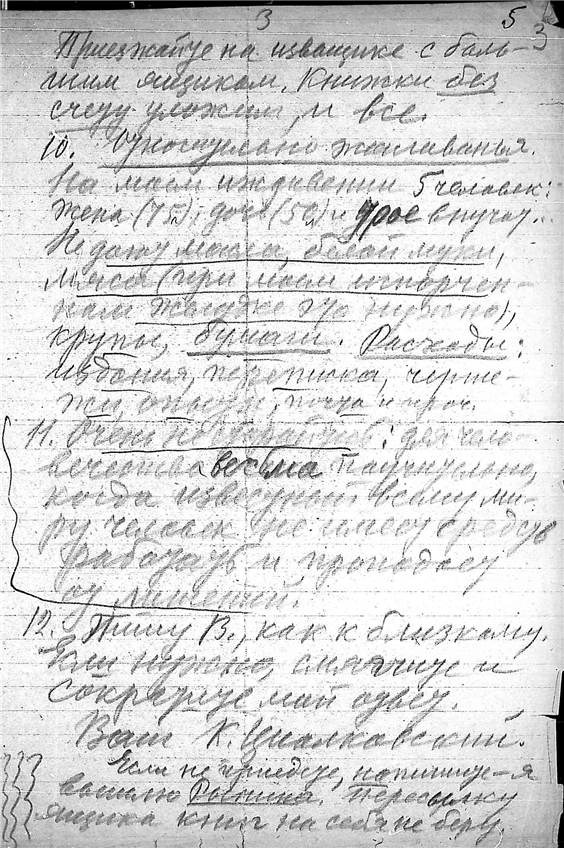 3 5 3
Приезжайте на извощике с боль-
шим ящиком. Книжки без
счету уложим, и все.
10. Относительно жалованья.
На моем иждивении 5 человек:
жена (75), дочь (50) и трое внучат.
Не дают масла, белой муки,
мяса (при моем испорчен-
ном желудке это нужно),
крупы, бумаги. Расходы:
издания, переписка, черте-
жи, опыты, почта и проч.
11. Очень не стесняйтесь: для чело-
вечества весьма поучительно,
когда известный всему ми-
ру человек не имеет средств
работать и пропадает
от лишений.
12. Пишу В., как к близкому.
Если нужно, смягчите и
сократите мой ответ.
Ваш К. Циолковский.
Если не приедете, напишите – я
вышлю Рынина. Пересылку
ящика книг на себя не беру.